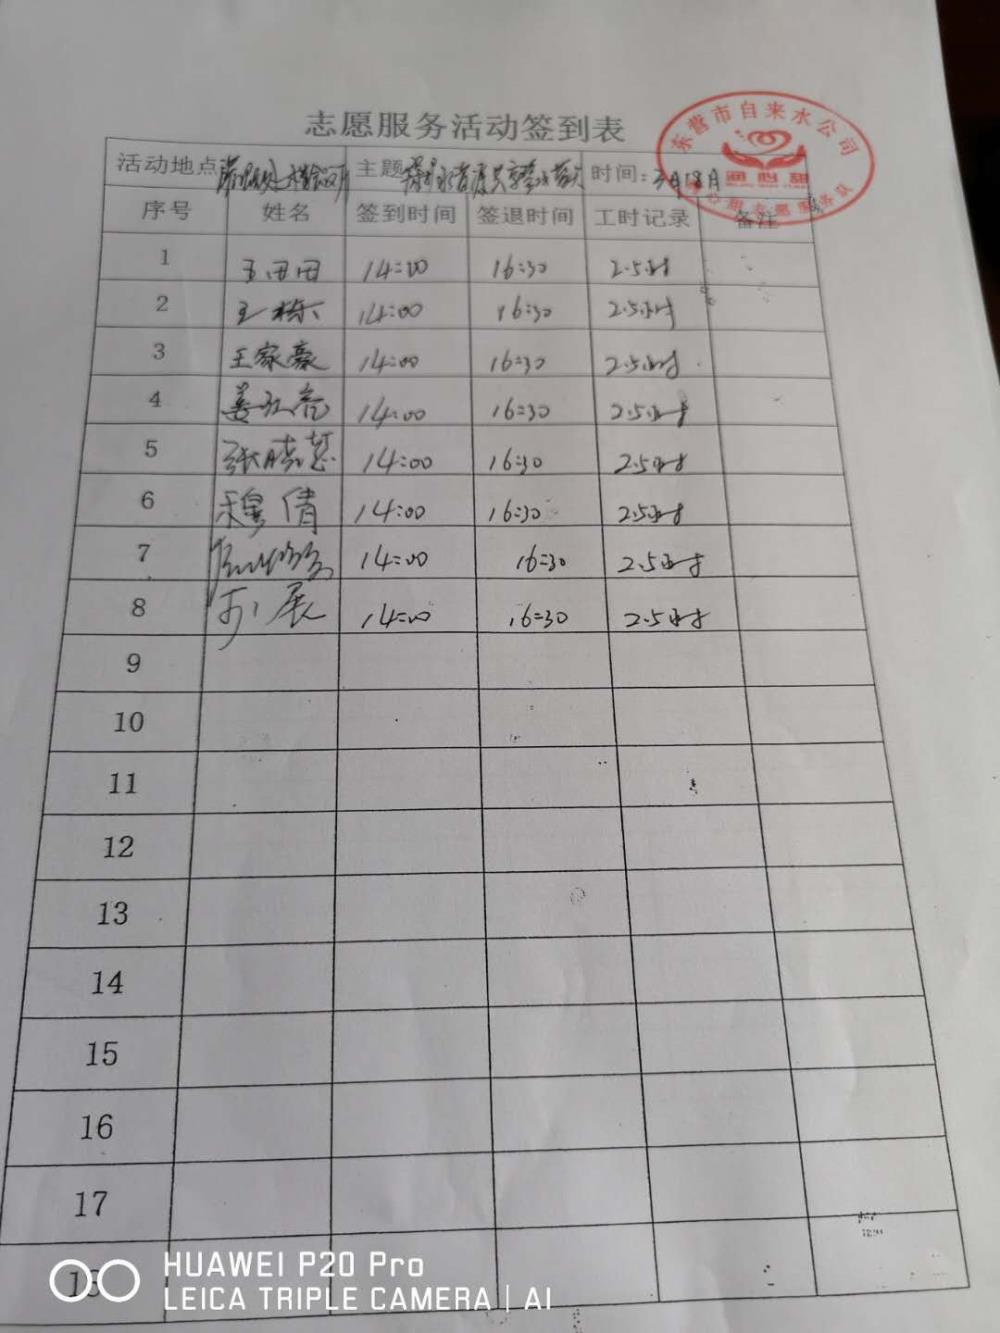 志愿服务活动签到表
东营市自来水公司
润心甜
心甜志愿服务队
活动地点 主题 时间：3月18日
序号 姓名 签到时间 签退时间 工时记录 备注
1 王田田 14:00 16:30 2.5时
2 王栋 14:00 16:30 2.5时
3 王家豪 14:00 16:30 2.5时
4 姜 亮 14:00 16:30 2.5时
5 张晓慧 14:00 16:30 2.5时
6 穆倩 14:00 16:30 2.5时
7 14:00 16:30 2.5时
8 展 14:00 16:30 2.5时
9
10
11
12
13
14
15
16
17
18
HUAWEI P20 Pro
LEICA TRIPLE CAMERA | AI